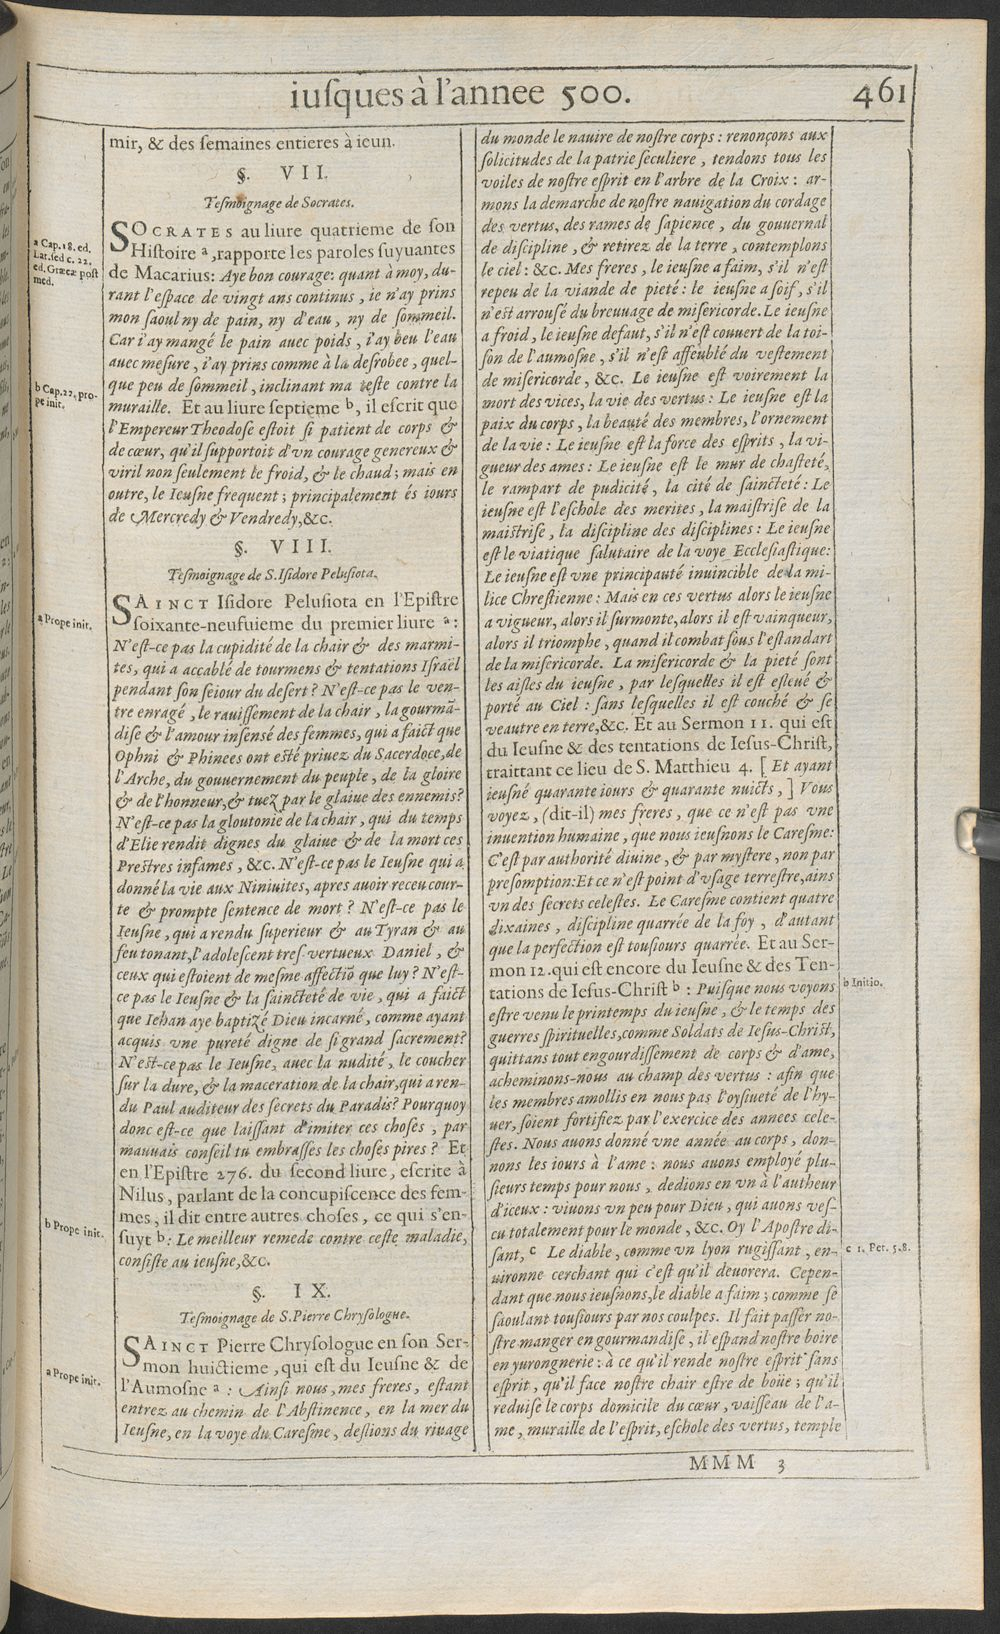 iusques à l'annee 500.
461
mir, & des semaines entieres à ieun.
§. VII.
Tesmoignage de Socrates.
SOCRATES au liure quatrieme de son
Histoire a, rapporte les paroles suyuantes
de Macarius: Aye bon courage: quant à moy, du-
rant l'espace de vingt ans continus, ie n'ay prins
mon saoul ny de pain, ny d'eau, ny de sommeil.
Car i'ay mangé le pain auec poids, i'ay beu l'eau
auec mesure, i'ay prins comme à la desrobee, quel-
que peu de sommeil, inclinant ma teste contre la
muraille. Et au liure septieme b, il escrit que
l'Empereur Theodose estoit si patient de corps &
de cœur, qu'il supportoit d'vn courage genereux &
viril non seulement le froid, & le chaud; mais en
outre, le Ieusne frequent; principalement és iours
de Mercredy & Vendredy, &c.
§. VIII.
Tesmoignage de S. Isidore Pelusiota.
SAINCT Isidore Pelusiota en l'Epistre
soixante-neufuieme du premier liure a:
N'est-ce pas la cupidité de la chair & des marmi-
tes, qui a accablé de tourmens & tentations Israël
pendant son seiour du desert? N'est-ce pas le ven-
tre enragé, le rauissement de la chair, la gourmā-
dise & l'amour insensé des femmes, qui a faict que
Ophni & Phinees ont esté priuez du Sacerdoce, de
l'Arche, du gouuernement du peuple, de la gloire
& de l'honneur, & tuez par le glaiue des ennemis?
N'est-ce pas la gloutonie de la chair, qui du temps
d'Elie rendit dignes du glaiue & de la mort ces
Prestres infames, &c. N'est-ce pas le Ieusne qui a
donné la vie aux Niniuites, apres auoir receu cour-
te & prompte sentence de mort? N'est-ce pas le
Ieusne, qui a rendu superieur & au Tyran & au
feu tonant, l'adolescent tres-vertueux Daniel, &
ceux qui estoient de mesme affectiō que luy? N'est-
ce pas le Ieusne & la saincteté de vie, qui a faict
que Iehan aye baptizé Dieu incarné, comme ayant
acquis vne pureté digne de si grand sacrement?
N'est-ce pas le Ieusne, auec la nudité, le coucher
sur la dure, & la maceration de la chair, qui a ren-
du Paul auditeur des secrets du Paradis? Pourquoy
donc est-ce que laissant d'imiter ces choses, par
mauuais conseil tu embrasses les choses pires? Et
en l'Epistre 276. du second liure, escrite à
Nilus, parlant de la concupiscence des fem-
mes, il dit entre autres choses, ce qui s'en-
suyt b: Le meilleur remede contre ceste maladie,
consiste au ieusne, &c.
§. IX.
Tesmoignage de S. Pierre Chrysologue.
SAINCT Pierre Chrysologue en son Ser-
mon huictieme, qui est du Ieusne & de
l'Aumosne a: Ainsi nous, mes freres, estant
entrez au chemin de l'Abstinence, en la mer du
Ieusne, en la voye du Caresme, deslions du riuage
a Cap. 18. ed.
Lat. sed c. 22.
ed. Græcæ post
med.
b Cap. 22. pro-
pe init.
a Prope init.
b Prope init.
a Prope init.
du monde le nauire de nostre corps: renonçons aux
solicitudes de la patrie seculiere, tendons tous les
voiles de nostre esprit en l'arbre de la Croix: ar-
mons la demarche de nostre nauigation du cordage
des vertus, des rames de sapience, du gouuernal
de discipline, & retirez de la terre, contemplons
le ciel: &c. Mes freres, le ieusne a faim, s'il n'est
repeu de la viande de pieté: le ieusne a soif, s'il
n'est arrousé du breuuage de misericorde. Le ieusne
a froid, le ieusne defaut, s'il n'est couuert de la toi-
son de l'aumosne, s'il n'est affeublé du vestement
de misericorde, &c. Le ieusne est voirement la
mort des vices, la vie des vertus: Le ieusne est la
paix du corps, la beauté des membres, l'ornement
de la vie: Le ieusne est la force des esprits, la vi-
gueur des ames: Le ieusne est le mur de chasteté,
le rampart de pudicité, la cité de saincteté: Le
ieusne est l'eschole des merites, la maistrise de la
maistrise, la discipline des disciplines: Le ieusne
est le viatique salutaire de la voye Ecclesiastique:
Le ieusne est vne principauté inuincible de la mi-
lice Chrestienne: Mais en ces vertus alors le ieusne
a vigueur, alors il surmonte, alors il est vainqueur,
alors il triomphe, quand il combat sous l'estandart
de la misericorde. La misericorde & la pieté sont
les aisles du ieusne, par lesquelles il est esleué &
porté au Ciel: sans lesquelles il est couché & se
veautre en terre, &c. Et au Sermon 11. qui est
du Ieusne & des tentations de Iesus-Christ,
traittant ce lieu de S. Matthieu 4. [Et ayant
ieusné quarante iours & quarante nuicts,] Vous
voyez, (dit-il) mes freres, que ce n'est pas vne
inuention humaine, que nous ieusnons le Caresme:
C'est par authorité diuine, & par mystere, non par
presomption: Et ce n'est point d'vsage terrestre, ains
vn des secrets celestes. Le Caresme contient quatre
dixaines, discipline quarrée de la foy, d'autant
que la perfection est tousiours quarrée. Et au Ser-
mon 12. qui est encore du Ieusne & des Ten-
tations de Iesus-Christ b: Puisque nous voyons
estre venu le printemps du ieusne, & le temps des
guerres spirituelles, comme Soldats de Iesus-Christ,
quittans tout engourdissement de corps & d'ame,
acheminons-nous au champ des vertus: afin que
les membres amollis en nous pas l'oysiueté de l'hy-
uer, soient fortifiez par l'exercice des annees cele-
stes. Nous auons donné vne année au corps, don-
nons les iours à l'ame: nous auons employé plu-
sieurs temps pour nous, dedions en vn à l'autheur
d'iceux: viuons vn peu pour Dieu, qui auons ves-
cu totalement pour le monde, &c. Oy l'Apostre di-
sant, c Le diable, comme vn lyon rugissant, en-
uironne cerchant qui c'est qu'il deuorera. Cepen-
dant que nous ieusnons, le diable a faim; comme se
saoulant tousiours par nos coulpes. Il fait passer no-
stre manger en gourmandise, il espand nostre boire
en yurongnerie: à ce qu'il rende nostre esprit sans
esprit, qu'il face nostre chair estre de boüe; qu'il
reduise le corps domicile du cœur, vaisseau de l'a-
me, muraille de l'esprit, eschole des vertus, temple
b Initio.
c 1. Pet. 5. 8.
MMM 3